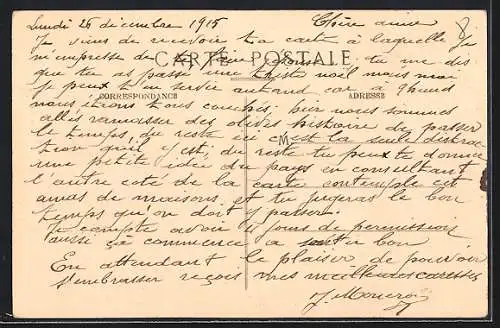 Lundi 26 décembre 1915 Chère amie
Je viens de recevoir ta carte à laquelle je
m'empresse de tu me dis
CARTE POSTALE
que tu as passé une triste noël mais moi
je peux t'en servir autant car à 9 heures
CORRESPONDANCE ADRESSE
nous étions tous couchés, puis nous sommes
allés ramasser des olives histoire de passer
le temps, du reste ici c'est la seule distrac
tion qu'il y est, du reste tu peux te donner
une petite idée du pays en consultant
l'autre côté de la carte contemple cet
amas de maisons et tu jugeras le bon
temps qu'on doit y passer.
Je compte avoir 4 jours de permission
aussi ça commence à sentir bon
En attendant le plaisir de pouvoir
t'embrasser reçois mes meilleures caresses
J.